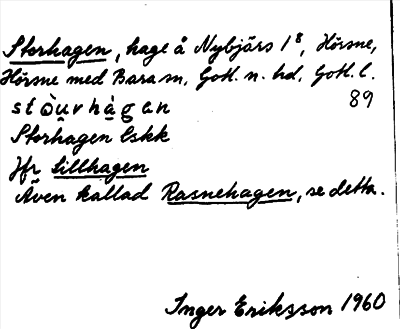 Storhagen, hage å Nybjärs 1⁸, Hörsne,
Hörsne med Bara sn, Gotl. n. hd, Gotl. l.
stòu̯rhàgan 89
Storhagen Eskk
Jfr Lillhagen
Även kallad Rasnehagen, se detta.
Inger Eriksson 1960